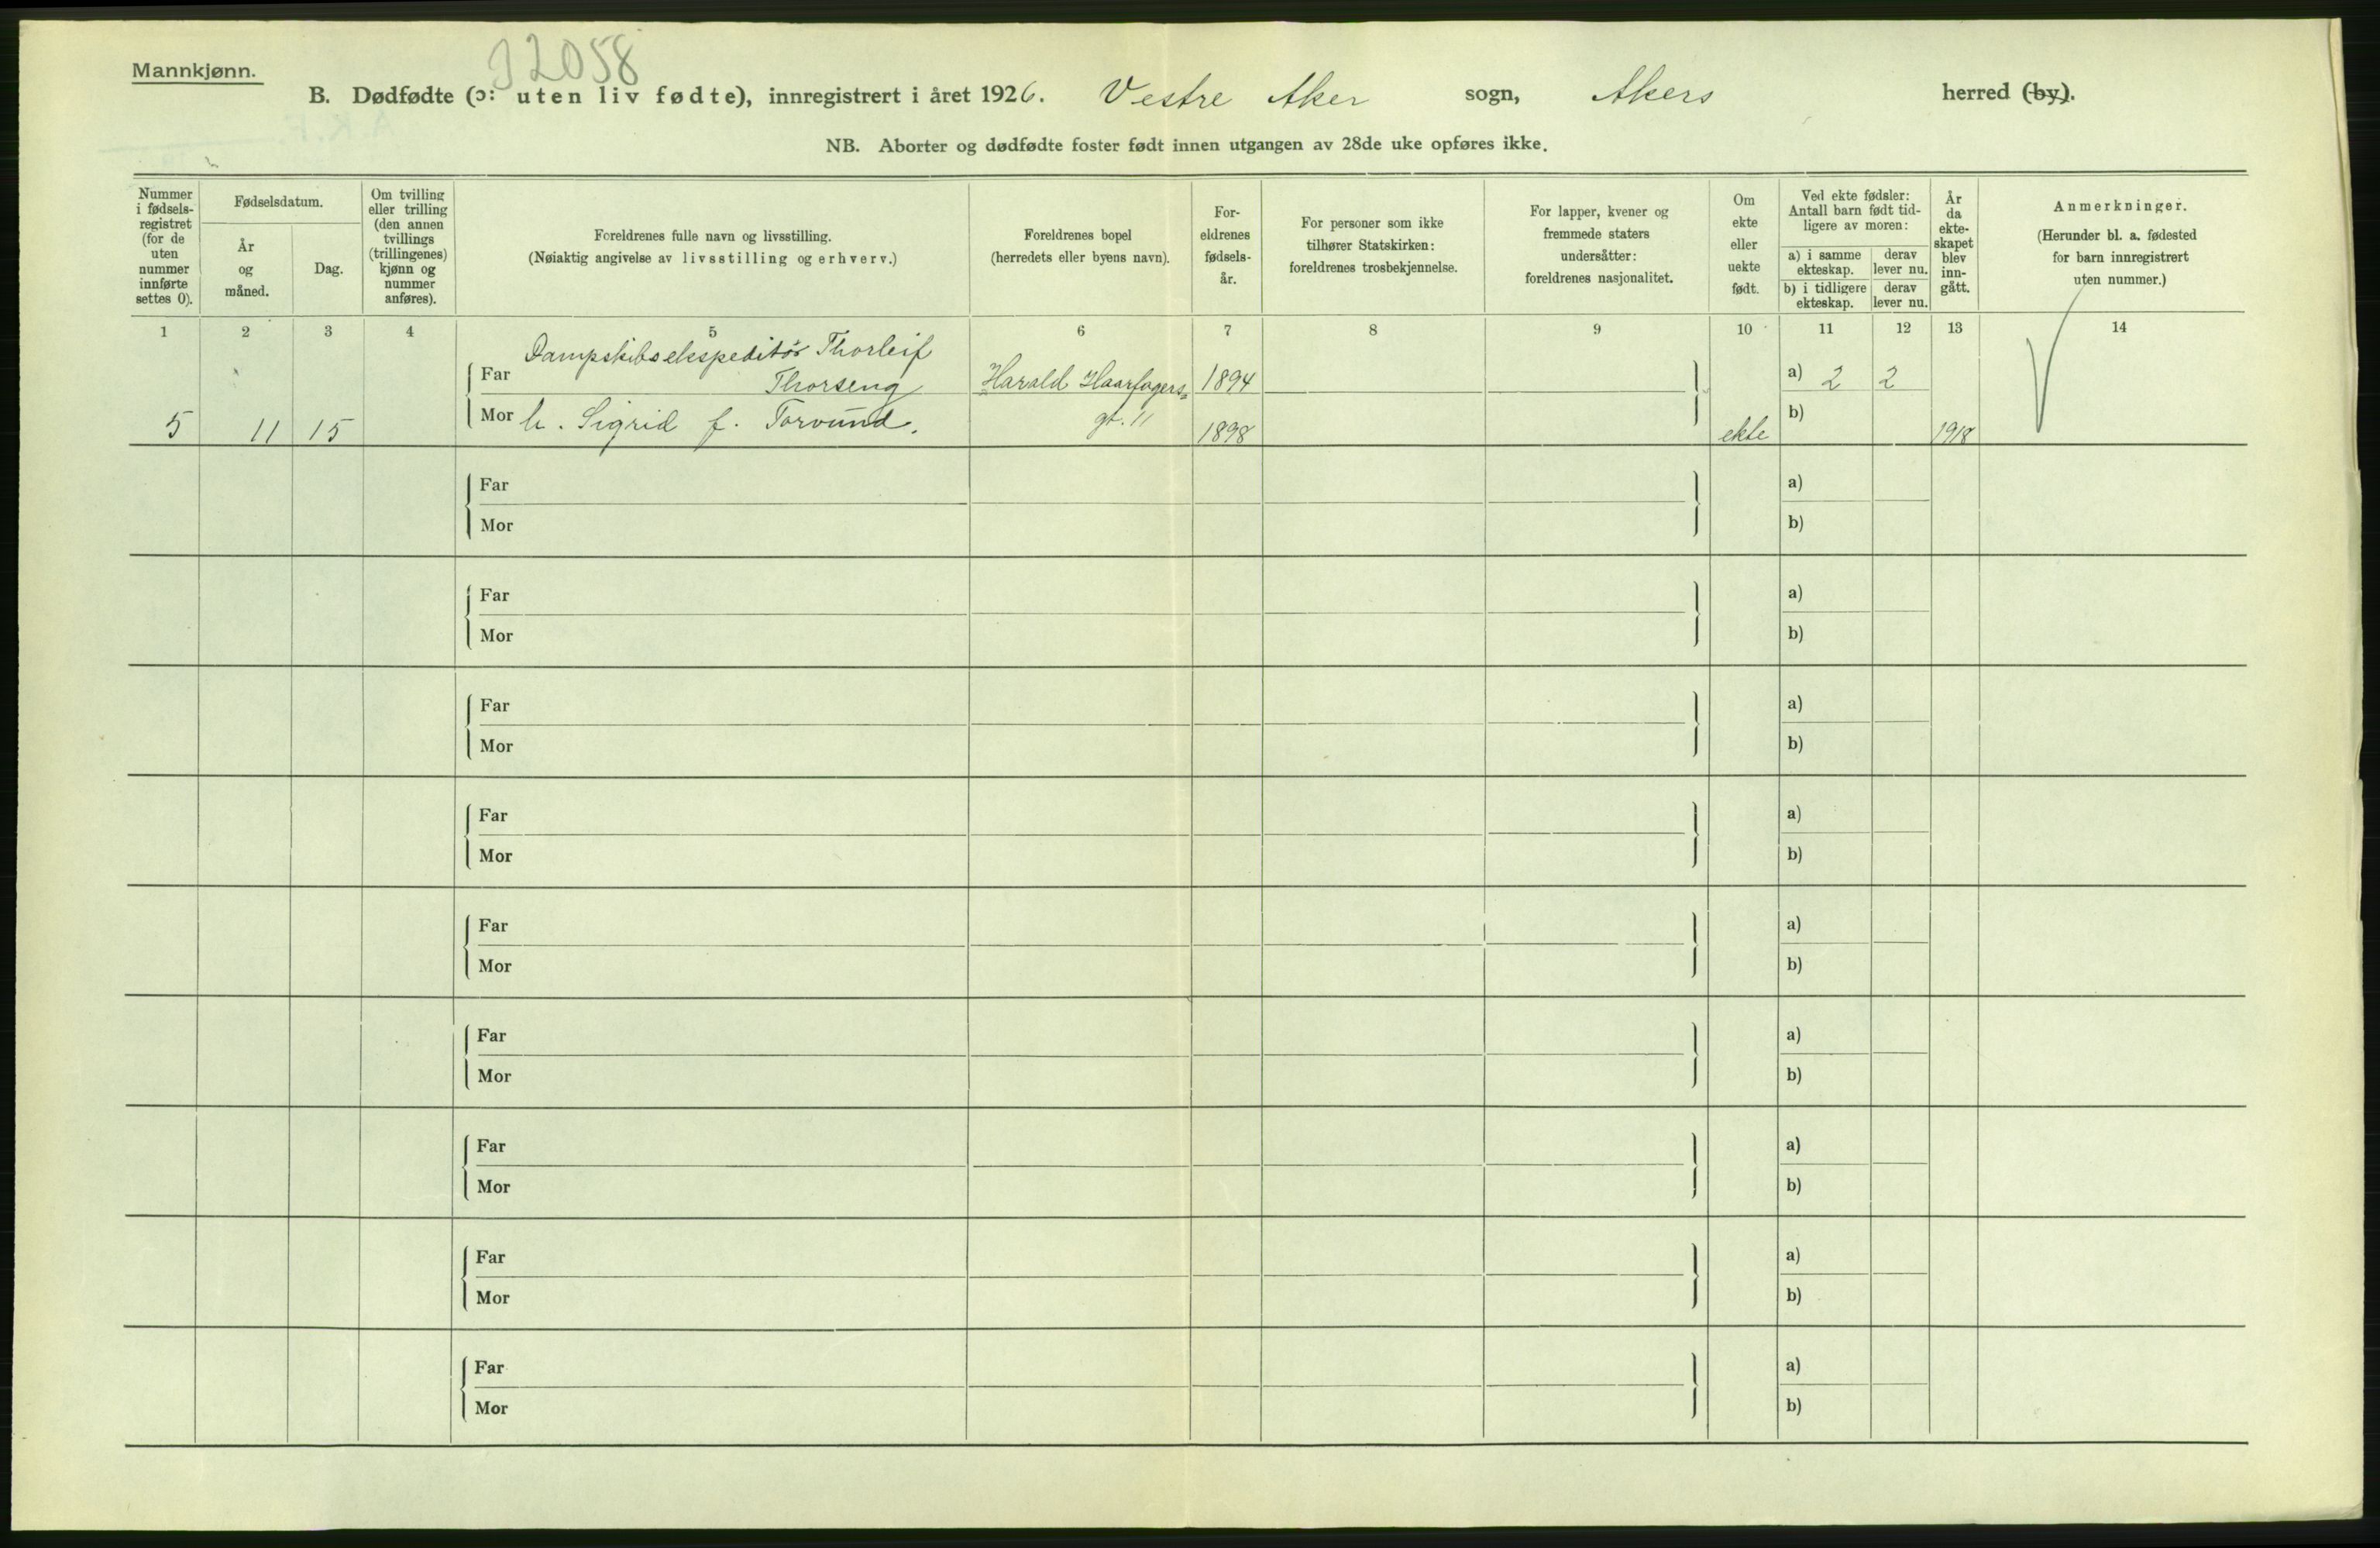 Mannkjønn.
32058
B. Dødfødte (ɔ: uten liv fødte), innregistrert i året 1926. Vestre Aker sogn, Akers herred (by).
NB. Aborter og dødfødte foster født innen utgangen av 28de uke opføres ikke.
Nummer
i fødsels-
registret
(for de
uten
nummer
innførte
settes 0).
Fødselsdatum.
År
og
måned.
Dag.
Om tvilling
eller trilling
(den annen
tvillings
(trillingenes)
kjønn og
nummer
anføres).
Foreldrenes fulle navn og livsstilling.
(Nøiaktig angivelse av livsstilling og erhverv.)
Foreldrenes bopel
(herredets eller byens navn).
For-
eldrenes
fødsels-
år.
For personer som ikke
tilhører Statskirken:
foreldrenes trosbekjennelse.
For lapper, kvener og
fremmede staters
undersåtter:
foreldrenes nasjonalitet.
Om
ekte
eller
uekte
født.
Ved ekte fødsler:
Antall barn født tid-
ligere av moren:
a) i samme
ekteskap.
derav
lever nu.
b) i tidligere
ekteskap.
derav
lever nu.
År
da
ekte-
skapet
blev
inn-
gått.
Anmerkninger.
(Herunder bl. a. fødested
for barn innregistrert
uten nummer.)
1 2 3 4 5 6 7 8 9 10 11 12 13 14
Dampskibsekspeditør Thorleif
Far Thorseng Harald Haarfagers= 1894 a) 2 2
Mor h. Sigrid f. Torvund. gt. 11 b)
5 11 15 1898 ekte 1918
Far a)
Mor b)
Far a)
Mor b)
Far a)
Mor b)
Far a)
Mor b)
Far a)
Mor b)
Far a)
Mor b)
Far a)
Mor b)
Far a)
Mor b)
Far a)
Mor b)